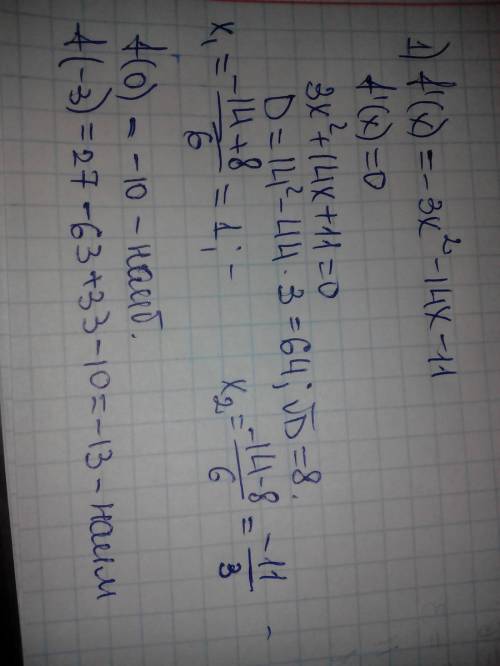 1) f'(x) = -3x² - 14x - 11
f'(x) = 0
3x² + 14x + 11 = 0
D = 14² - 44 · 3 = 64; √D = 8.
x₁ = (-14 + 8)/6 = 1; - x₂ = (-14 - 8)/6 = -11/3 -
f(0) = -10 - наиб.
f(-3) = 27 - 63 + 33 - 10 = -13 - наим